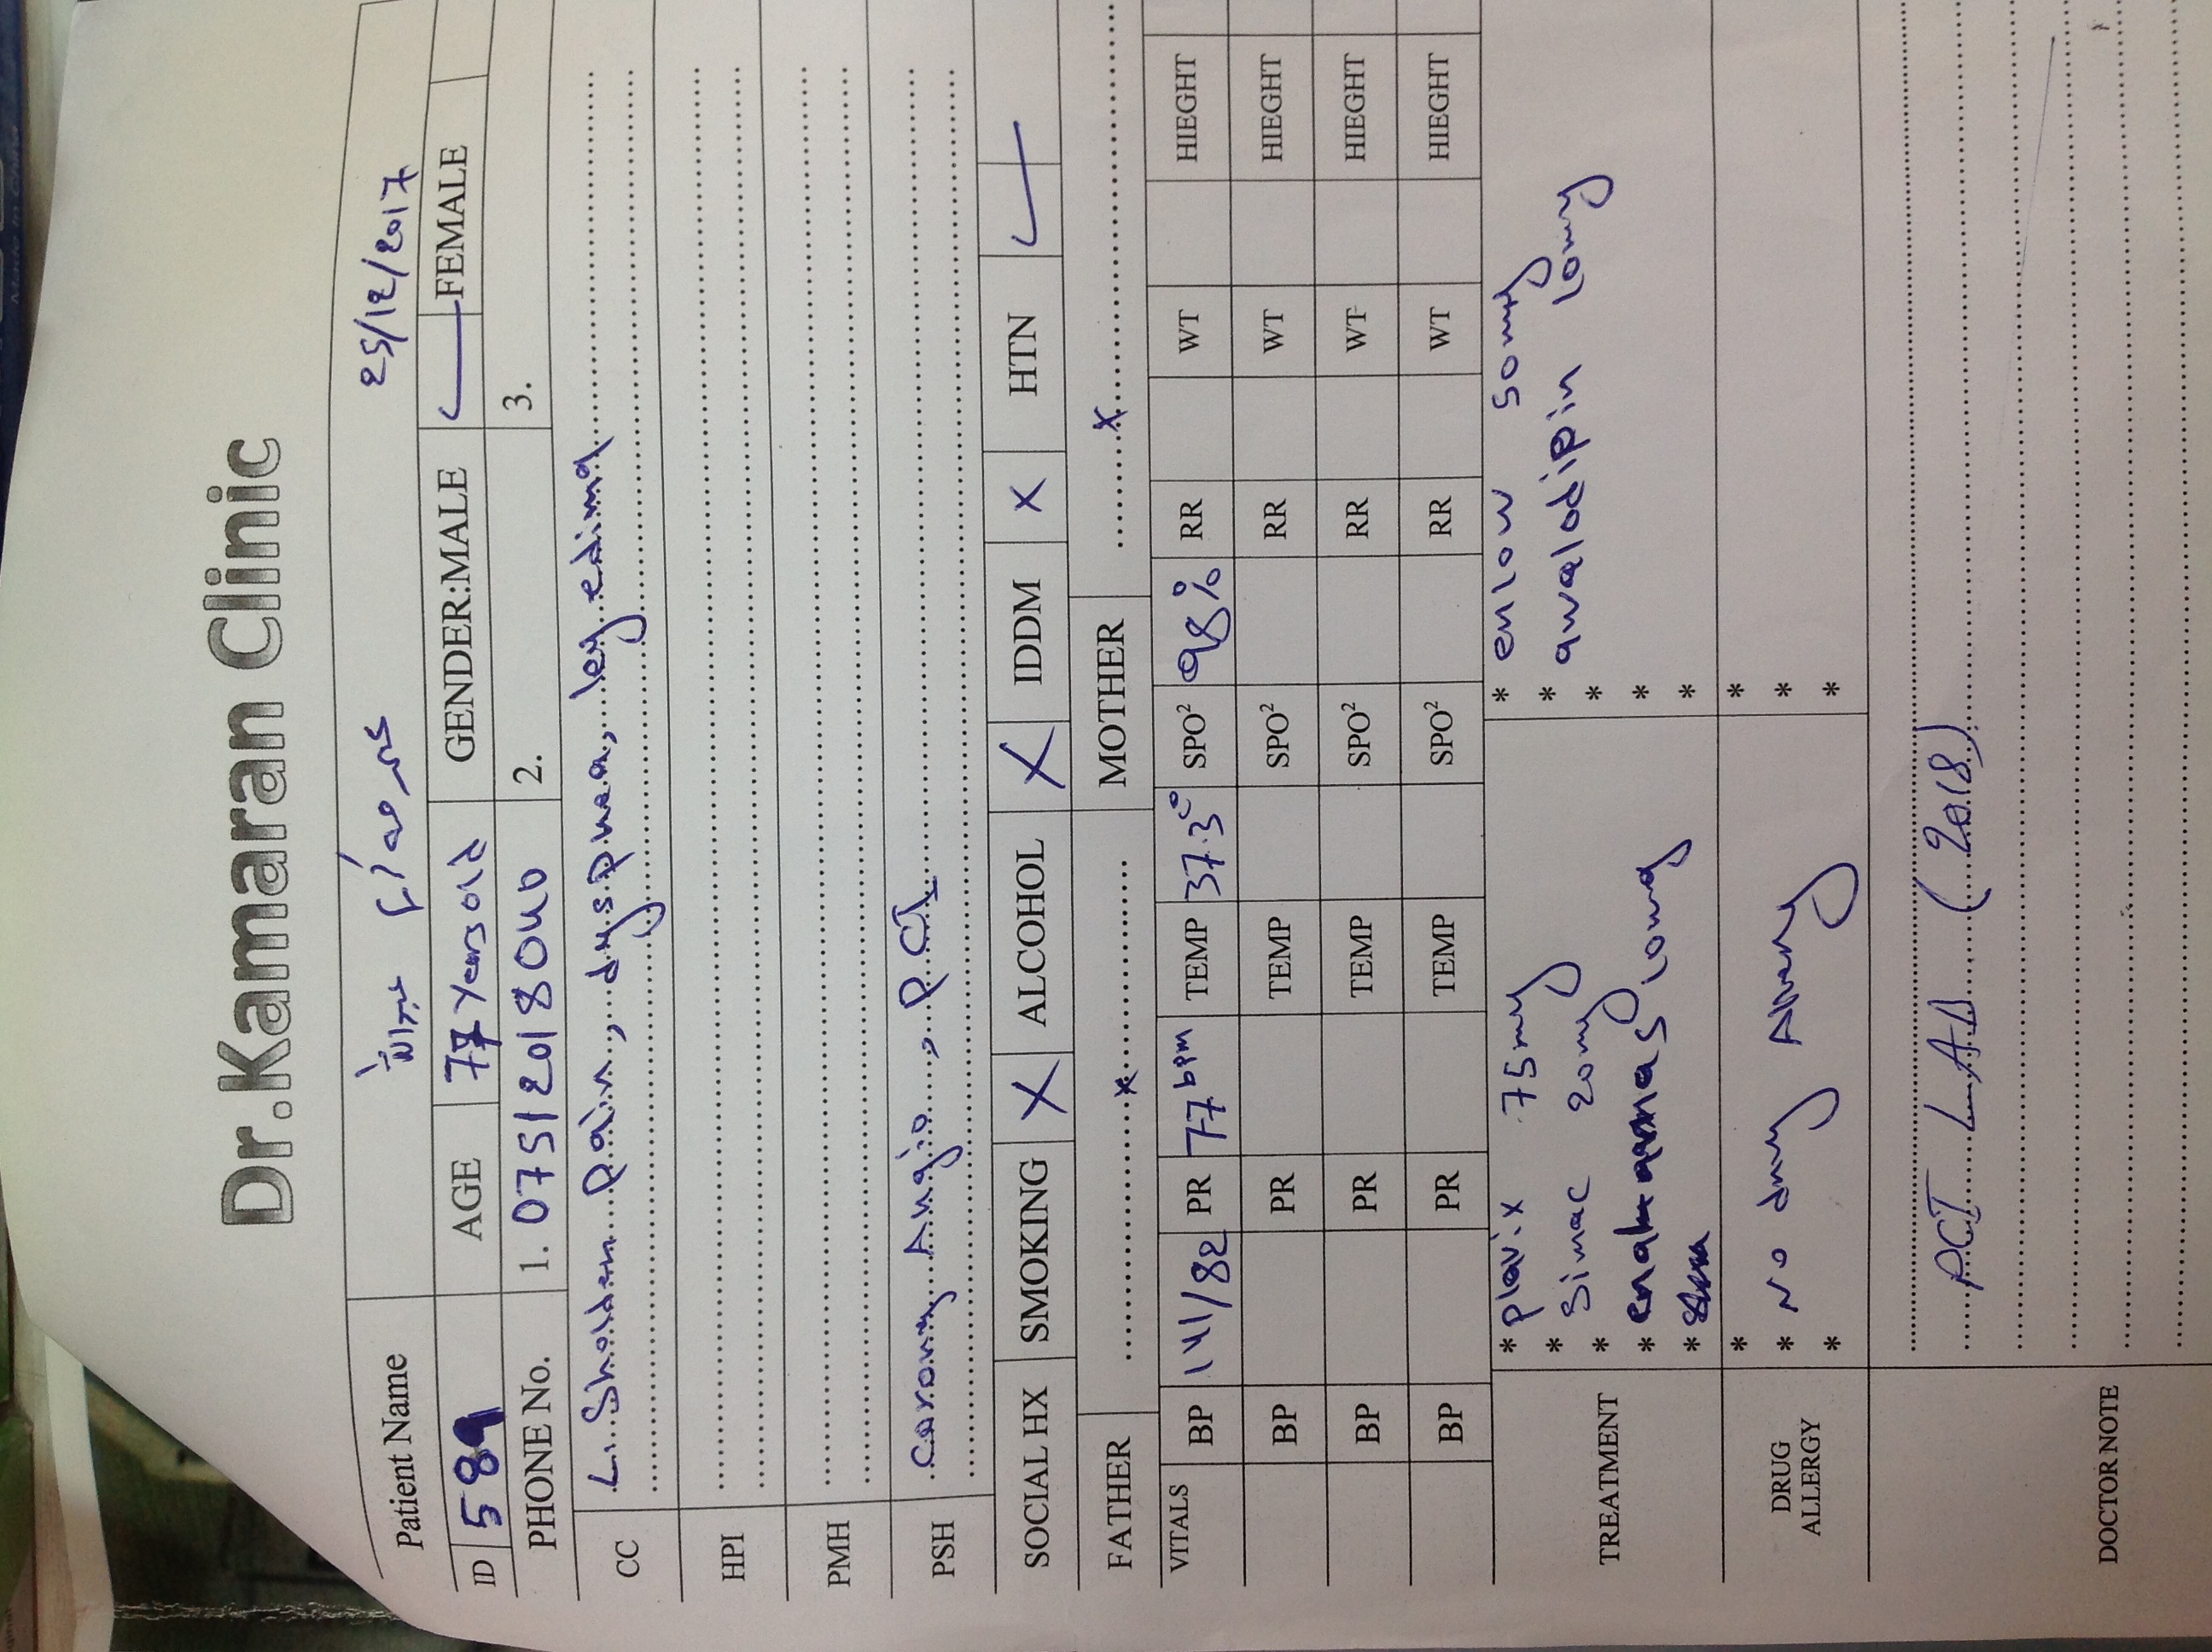 Dr.Kamaran Clinic
Patient Name 25/12/2017
ID 589 AGE 77 Years old GENDER:MALE ✓ FEMALE
PHONE No. 1. 0751 201 8040 2. 3.
CC L. Sholder pain, dyspnea, leg edima
HPI
PMH
PSH coronary Angio, PCI
SOCIAL HX SMOKING X ALCOHOL X IDDM X HTN ✓
FATHER x MOTHER x
VITALS BP 141/82 PR 77 bpm TEMP 37.3c° SPO² 98% RR WT HIEGHT
BP PR TEMP SPO² RR WT HIEGHT
BP PR TEMP SPO² RR WT HIEGHT
BP PR TEMP SPO² RR WT HIEGHT
TREATMENT * plavix 75mg * enlow 50mg
* Simac 20mg * amalodipin 10mg
* *
* 10mg *
* *
DRUG ALLERGY * *
* No drug Allergy *
* *
DOCTOR NOTE
PCI LAD (2018)